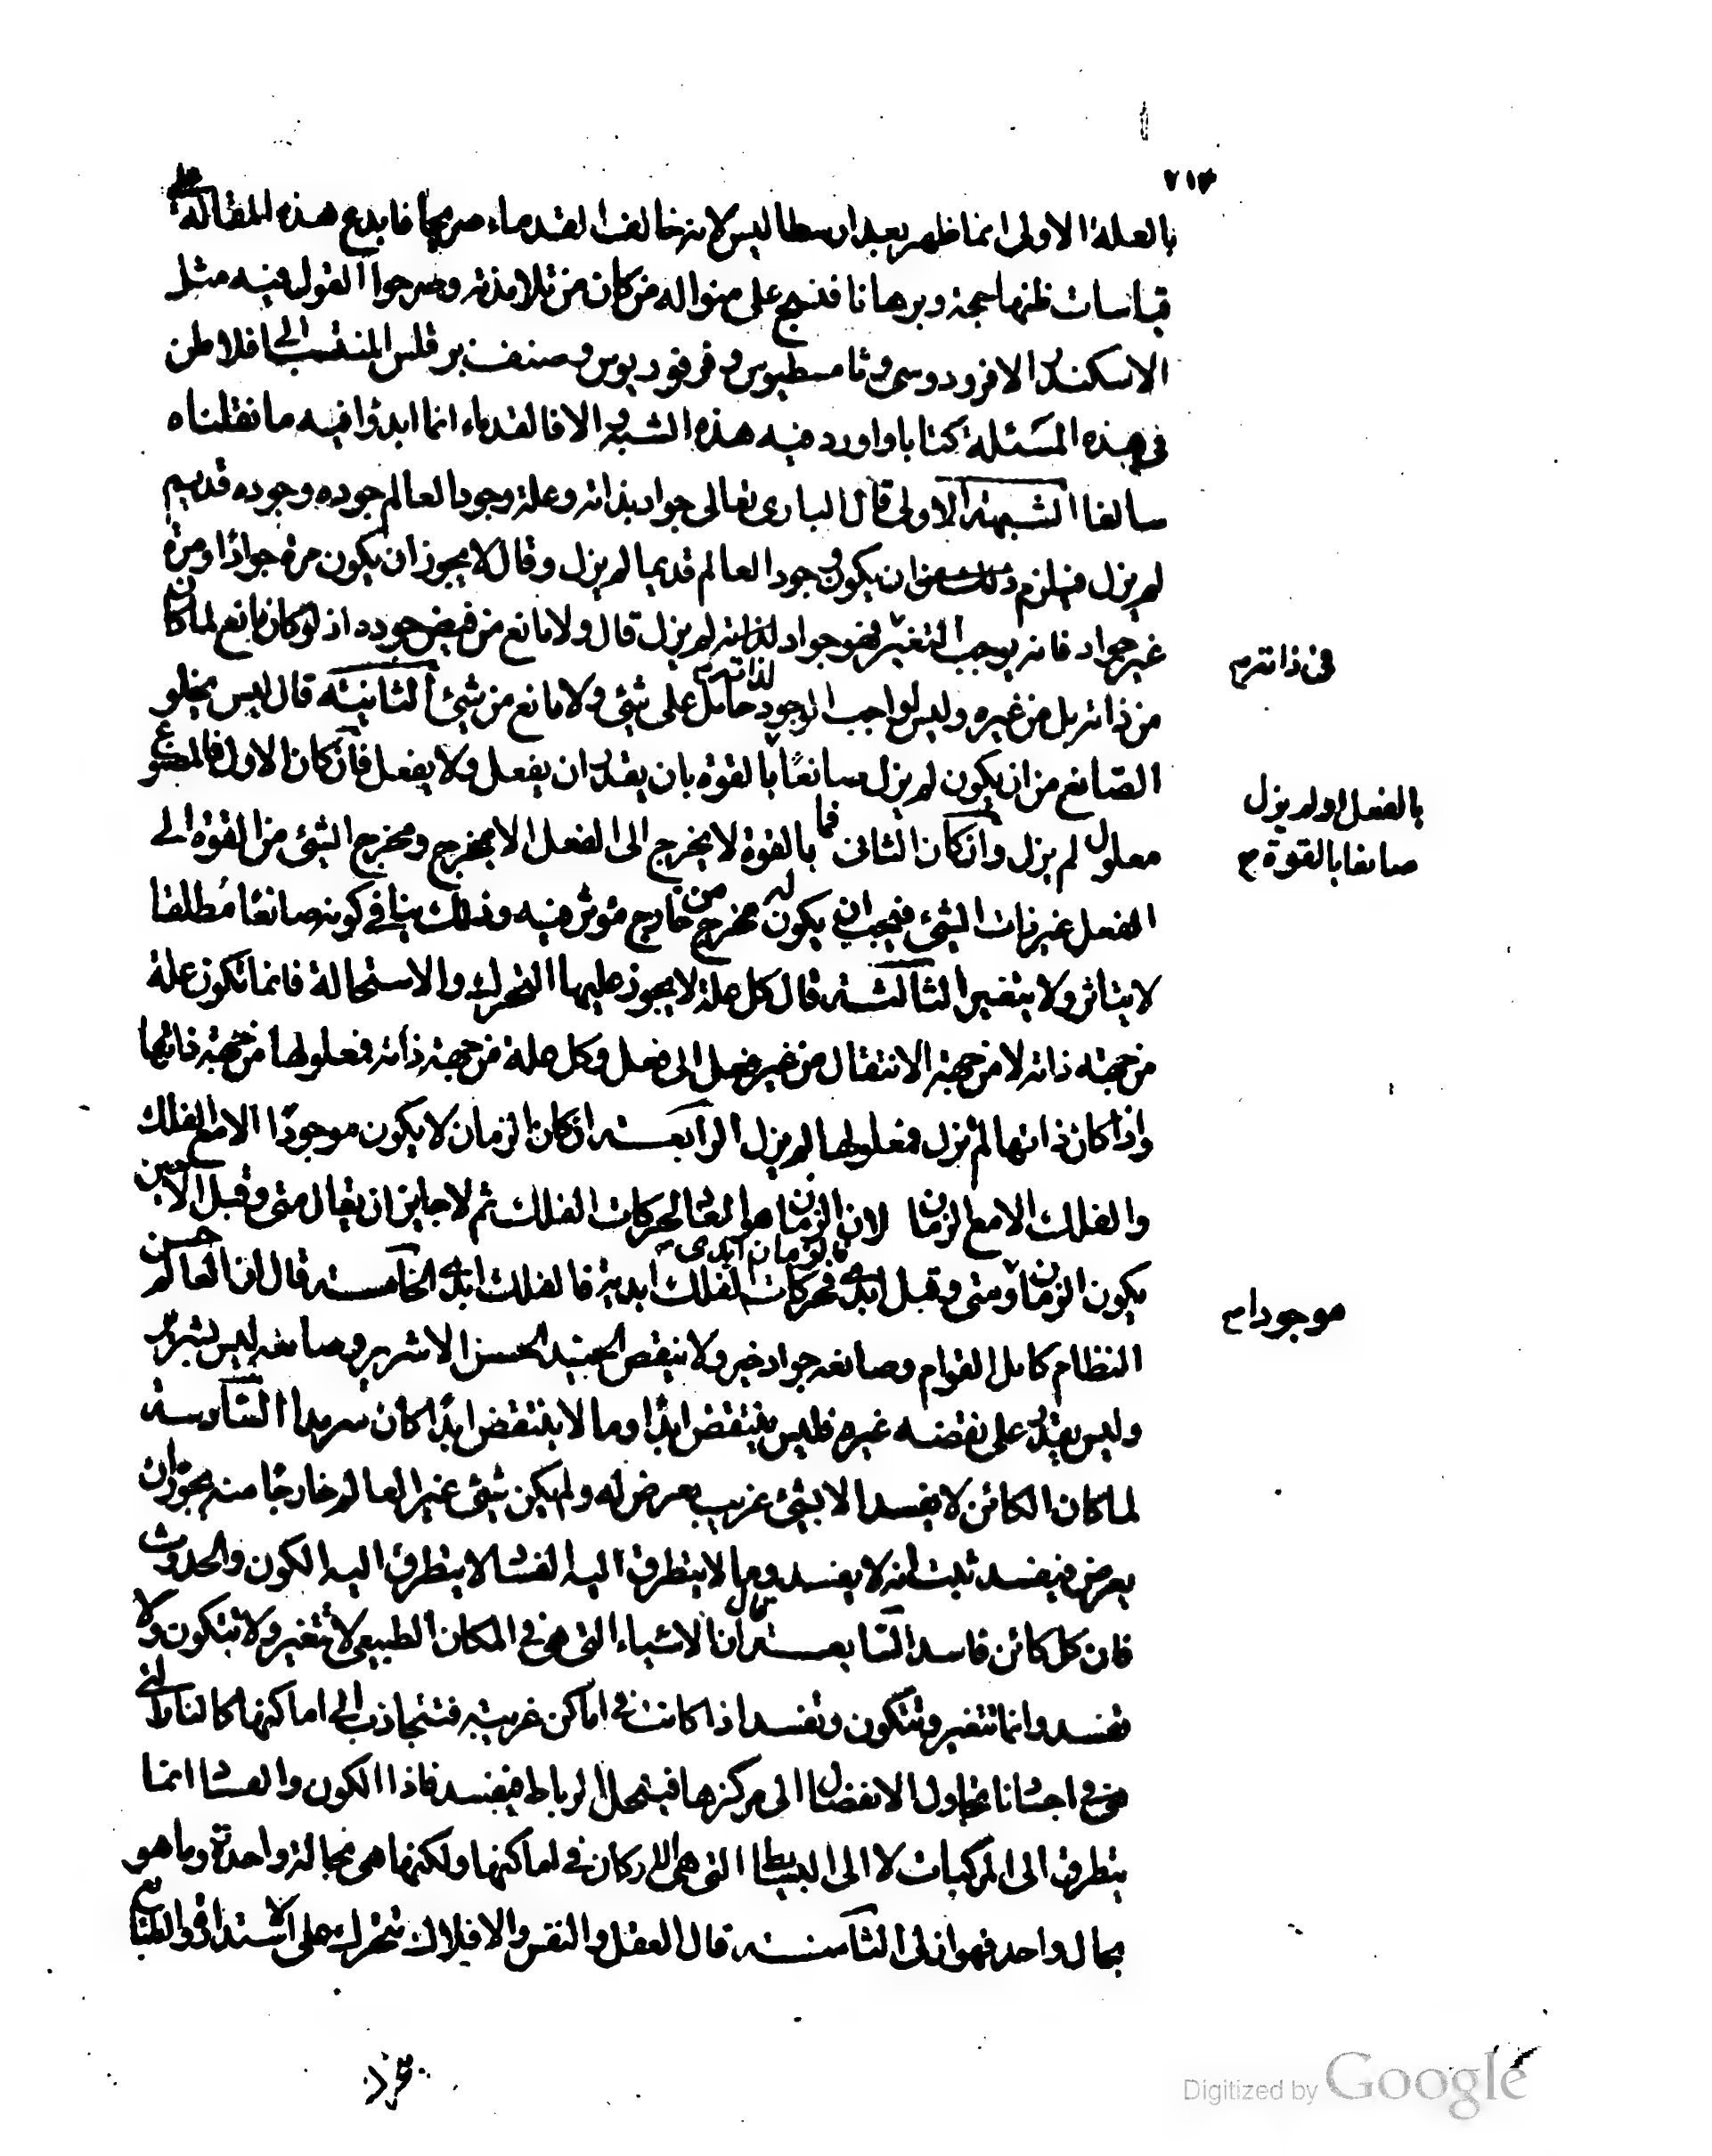 ٢١٣
بالعلة الاولى انما ظهر بعد ارسطاليس لانه خالف القدماء صريحا فابدع هذه المقالة على
قياسات ظنها حجة وبرهانا فنسج على منواله من كان من تلامذته وصرحوا القول فيه مثل
الاسكندر الافروديسى وثامسطيوس وفرفوريوس وصنف برقلس المنتسب الى افلاطن
فى هذه المسئلة كتابا واورد فيه هذه الشبه والا فالقدماء انما ابدؤا فيه ما نقلناه
سالفا الشبهة الاولى قال البارى تعالى جواد بذاته وعلة وجود العالم جوده وجوده قديم
لم يزل فيلزم ان يكون وجود العالم قديما لم يزل وقال لا يجوز ان يكون مرة جوادا ومرة
غير جواد فانه يوجب التغير فهو جواد لذاته لم يزل قال ولا مانع من فيض جوده اذ لو كان مانع لما كان
فى ذاته م
من ذاته بل من غيره وليس لواجب الوجود لذاته حامل على شئ ولا مانع من شئ الثانية قال ليس يخلو
الصانع من ان يكون لم يزل صانعا بالقوة بان يقدر ان يفعل ولا يفعل فان كان الاول فالمصنوع
بالفعل او لم يزل
صانعا بالقوة م
معلول لم يزل وان كان الثانى فما بالقوة لا يخرج الى الفعل الا بمخرج ومخرج الشئ من القوة الى
الفعل غير ذات الشئ فيجب ان يكون له مخرج من خارج مؤثر فيه وذلك ينافى كونه صانعا مطلقا
لا يتاثر ولا يتغير الثالثة قال كل علة لا يجوز عليها التحرك والاستحالة فانما تكون علة
من جهة ذاته لا من جهة الانتقال من غير فعل الى فعل وكل علة من جهة ذاته فمعلولها من جهة ذاتها
واذا كان ذاتها لم تزل فمعلولها لم يزل الرابعة ان كان الزمان لا يكون موجودا الا مع الفلك
والفلك الا مع الزمان لان الزمان هو العاد لحركات الفلك ثم لا جايز ان يقال متى وقبل الا حين
يكون الزمان ومتى وقبل ابدى فالزمان ابدى فحركات الفلك ابدية فالفلك ابدى الخامسة قال ان العالم حسن
موجودا م
النظام كامل القوام وصانعه جواد خير ولا ينقض الجيد الحسن الا شرير وصانعه ليس بشرير
وليس يقدر على نقضه غيره فليس ينتقض ابدا وما لا ينتقض ابدا كان سرمدا السادسة
لما كان الكائن لا يفسد الا بشئ غريب يعرض له ولم يكن شئ غير العالم خارجا منه يجوز ان
يعرض فيفسد ثبت انه لا يفسد وما لا يتطرق اليه الفساد لا يتطرق اليه الكون والحدوث
فان كل كائن فاسد السابعة قال ان الاشياء التى هى فى المكان الطبيعى لا تتغير ولا تتكون ولا
تفسد وانما تتغير وتتكون وتفسد اذا كانت فى اماكن غريبة فتتجاذب الى اماكنها كالنار التى
هى فى اجسادنا تحاول الانفصال الى مركزها فينحل الرباط فيفسد فاذا الكون والفساد انما
يتطرق الى المركبات لا الى البسائط التى هى الاركان فى اماكنها ولكنها هى بحالة واحدة وما هو
بحال واحد فهو ازلى الثامنة قال العقل والنفس والافلاك تتحرك على الاستدارة والطبائع
Digitized by Google